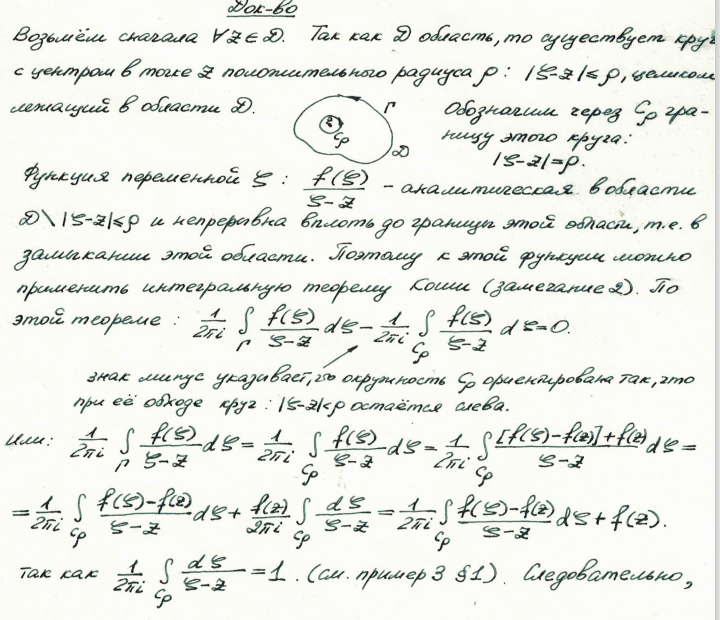 Док-во
Возьмём сначала ∀z∈D. Так как D область, то существует круг
с центром в точке z положительного радиуса ρ: |ξ-z|≤ρ, целиком
лежащий в области D.
z Cρ Γ D
Обозначим через Cρ гра-
ницу этого круга:
|ξ-z|=ρ.
Функция переменной ξ: f(ξ)/(ξ-z) - аналитическая в области
D\|ξ-z|≤ρ и непрерывна вплоть до границы этой области, т.е. в
замыкании этой области. Поэтому к этой функции можно
применить интегральную теорему Коши (замечание 2). По
этой теореме: 1/(2πi) ∫_Γ f(ξ)/(ξ-z) dξ - 1/(2πi) ∫_Cρ f(ξ)/(ξ-z) dξ=0.
знак минус указывает, что окружность Cρ ориентирована так, что
при её обходе круг: |ξ-z|<ρ остаётся слева.
Или: 1/(2πi) ∫_Γ f(ξ)/(ξ-z) dξ = 1/(2πi) ∫_Cρ f(ξ)/(ξ-z) dξ = 1/(2πi) ∫_Cρ ([f(ξ)-f(z)]+f(z))/(ξ-z) dξ =
= 1/(2πi) ∫_Cρ (f(ξ)-f(z))/(ξ-z) dξ + f(z)/(2πi) ∫_Cρ dξ/(ξ-z) = 1/(2πi) ∫_Cρ (f(ξ)-f(z))/(ξ-z) dξ + f(z).
так как 1/(2πi) ∫_Cρ dξ/(ξ-z) = 1. (см. пример 3 §1). Следовательно,